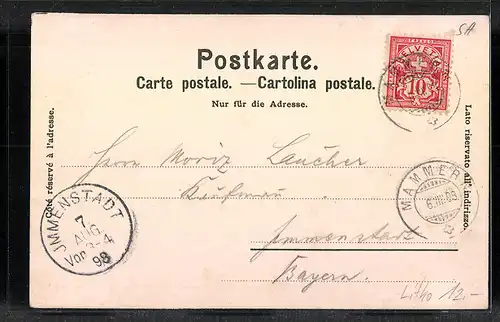 5A
Postkarte.
Carte postale. — Cartolina postale.
Nur für die Adresse.
Côté réservé à l'adresse.
Lato riservato all' indirizzo.
HELVETIA
10
Herrn Moriz Laucher
Kaufmann
Immenstadt
Bayern.
MAMMERN
JMMENSTADT
7
AUG.
Vor. 3-4
98
Litho 12.-